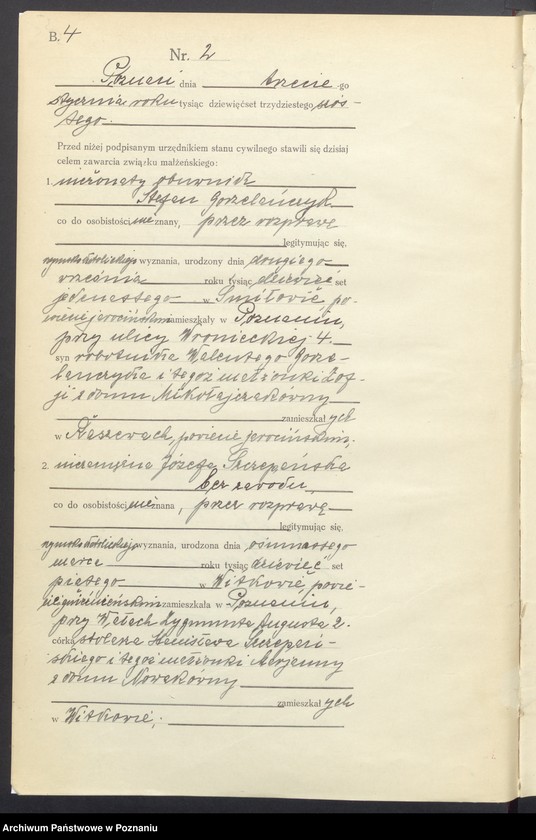 B. 4
Nr. 2
Poznań dnia trzecie go
stycznia roku tysiąc dziewięćset trzydziestego szós-
tego.
Przed niżej podpisanym urzędnikiem stanu cywilnego stawili się dzisiaj
celem zawarcia związku małżeńskiego:
1. nieżonaty obuwnik
Stefan Gorzelańczyk
co do osobistości nieznany, przez rozprawę
legitymując się,
rzymsko katolickiego wyznania, urodzony dnia drugiego
września roku tysiąc dziewięć set
jednastego w Smiłowie, po-
wiecie jarocińskim zamieszkały w Poznaniu,
przy ulicy Wronieckiej 4.
syn robotnika Walentego Gorze-
lańczyka i tegoż małżonki Zof-
ji z domu Mikołajczakówny
zamieszkał ych
w Raszewach, powiecie jarocińskim.
2. niezamężna Józefa Szczepańska
bez zawodu,
co do osobistości nieznana, przez rozprawę
legitymując się,
rzymsko katolickiego wyznania, urodzona dnia ośmnastego
marca roku tysiąc dziewięć set
piątego w Witkowie, powie-
cie gnieźnieńskim zamieszkała w Poznaniu,
przy Wałach Zygmunta Augusta 2.
córka stolarza Stanisława Szczepań-
skiego i tegoż małżonki Marjanny
z domu Nowakówny
zamieszkał ych
w Witkowie.
Archiwum Państwowe w Poznaniu